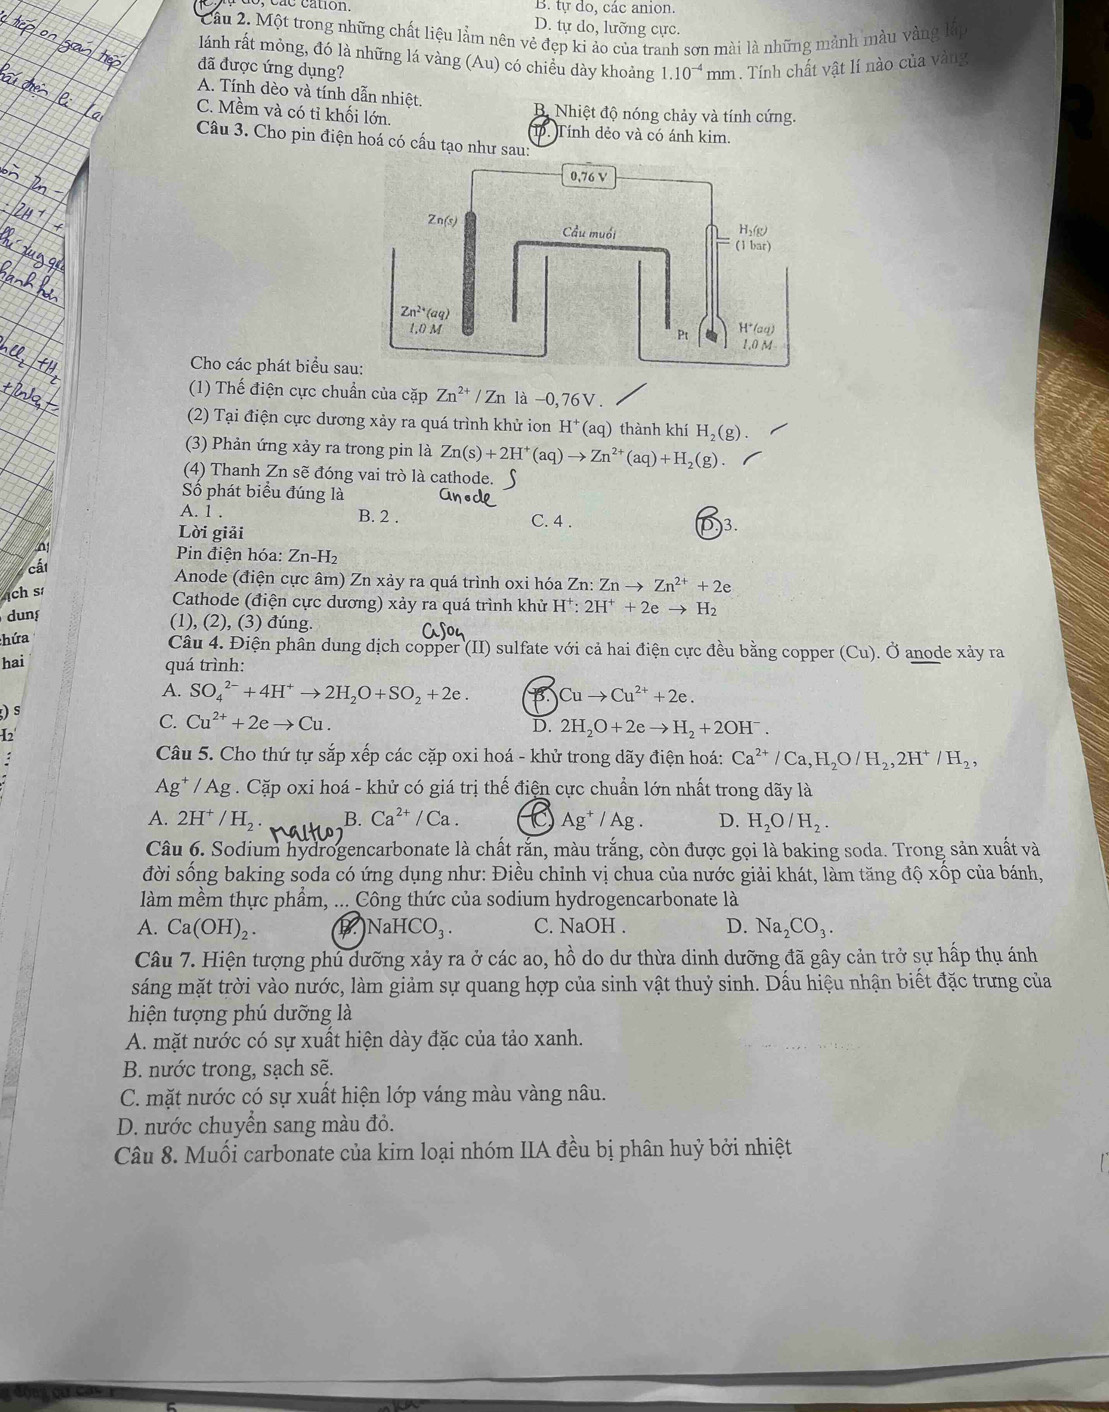 B. tự do, các anion.
D. tự do, lưỡng cực.
Câu 2. Một trong những chất liệu làm nên vẻ đẹp kì ảo của tranh sơn mài là những mảnh màu vàng lấp
lánh rất mỏng, đó là những lá vàng (Au) có chiều dày khoảng 1.10⁻⁴ mm. Tính chất vật lí nào của vàng
đã được ứng dụng?
A. Tính dẻo và tính dẫn nhiệt.
B. Nhiệt độ nóng chảy và tính cứng.
C. Mềm và có tỉ khối lớn.
D. Tính dẻo và có ánh kim.
Câu 3. Cho pin điện hoá có cấu tạo như sau:
0,76 V
Zn(s)
Cầu muối
H₂(g)
(1 bar)
Zn²⁺(aq)
1,0 M
Pt
H⁺(aq)
1,0 M
Cho các phát biểu sau:
(1) Thế điện cực chuẩn của cặp Zn²⁺ / Zn là −0,76 V.
(2) Tại điện cực dương xảy ra quá trình khử ion H⁺(aq) thành khí H₂(g).
(3) Phản ứng xảy ra trong pin là Zn(s) + 2H⁺(aq) → Zn²⁺(aq) + H₂(g).
(4) Thanh Zn sẽ đóng vai trò là cathode. S
anode
Số phát biểu đúng là
A. 1. B. 2. C. 4. D. 3.
Lời giải
Pin điện hóa: Zn-H₂
Anode (điện cực âm) Zn xảy ra quá trình oxi hóa Zn: Zn → Zn²⁺ + 2e
Cathode (điện cực dương) xảy ra quá trình khử H⁺: 2H⁺ + 2e → H₂
(1), (2), (3) đúng.
Câu 4. Điện phân dung dịch copper (II) sulfate với cả hai điện cực đều bằng copper (Cu). Ở anode xảy ra
quá trình:
A. SO₄²⁻ + 4H⁺ → 2H₂O + SO₂ + 2e. B. Cu → Cu²⁺ + 2e.
C. Cu²⁺ + 2e → Cu. D. 2H₂O + 2e → H₂ + 2OH⁻.
Câu 5. Cho thứ tự sắp xếp các cặp oxi hoá - khử trong dãy điện hoá: Ca²⁺ / Ca, H₂O / H₂, 2H⁺ / H₂,
Ag⁺ / Ag. Cặp oxi hoá - khử có giá trị thế điện cực chuẩn lớn nhất trong dãy là
A. 2H⁺ / H₂. B. Ca²⁺ / Ca. C. Ag⁺ / Ag. D. H₂O / H₂.
Câu 6. Sodium hydrogencarbonate là chất rắn, màu trắng, còn được gọi là baking soda. Trong sản xuất và
đời sống baking soda có ứng dụng như: Điều chỉnh vị chua của nước giải khát, làm tăng độ xốp của bánh,
làm mềm thực phẩm, ... Công thức của sodium hydrogencarbonate là
A. Ca(OH)₂. B. NaHCO₃. C. NaOH. D. Na₂CO₃.
Câu 7. Hiện tượng phú dưỡng xảy ra ở các ao, hồ do dư thừa dinh dưỡng đã gây cản trở sự hấp thụ ánh
sáng mặt trời vào nước, làm giảm sự quang hợp của sinh vật thuỷ sinh. Dấu hiệu nhận biết đặc trưng của
hiện tượng phú dưỡng là
A. mặt nước có sự xuất hiện dày đặc của tảo xanh.
B. nước trong, sạch sẽ.
C. mặt nước có sự xuất hiện lớp váng màu vàng nâu.
D. nước chuyển sang màu đỏ.
Câu 8. Muối carbonate của kim loại nhóm IIA đều bị phân huỷ bởi nhiệt